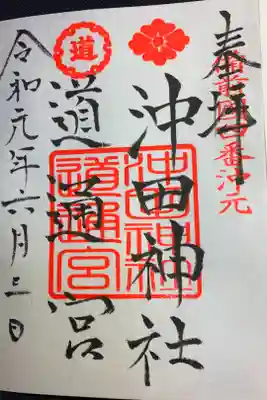 奉拝
沖田神社
道通宮
令和元年六月三日
道
沖田神社
道通宮